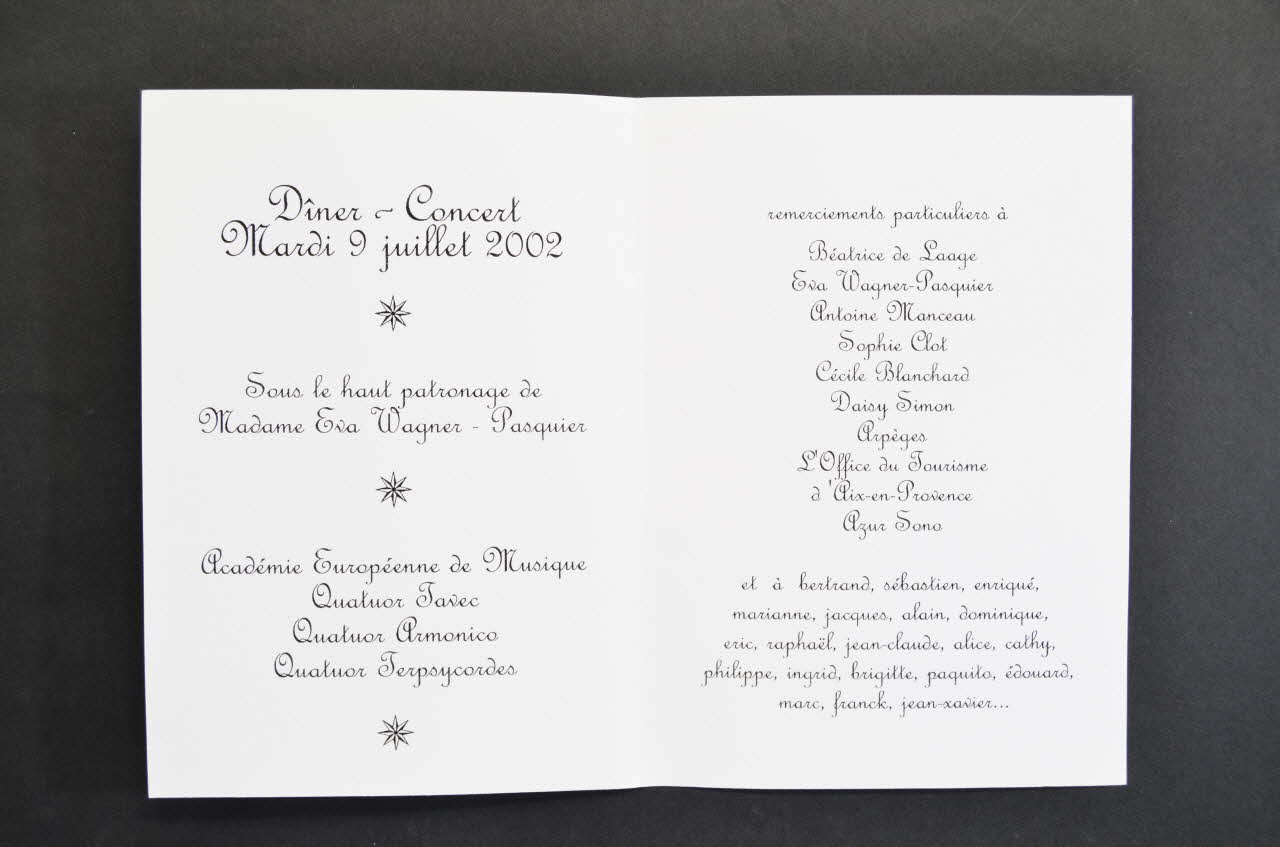 Dîner ~ Concert
Mardi 9 juillet 2002
Sous le haut patronage de
Madame Eva Wagner - Pasquier
Académie Européenne de Musique
Quatuor Tavec
Quatuor Armonico
Quatuor Terpsycordes
remerciements particuliers à
Béatrice de Laage
Eva Wagner-Pasquier
Antoine Manceau
Sophie Clot
Cécile Blanchard
Daisy Simon
Arpèges
L'Office du Tourisme
d 'Aix-en-Provence
Azur Sono
et à bertrand, sébastien, enriqué,
marianne, jacques, alain, dominique,
eric, raphaël, jean-claude, alice, cathy,
philippe, ingrid, brigitte, paquito, édouard,
marc, franck, jean-xavier...